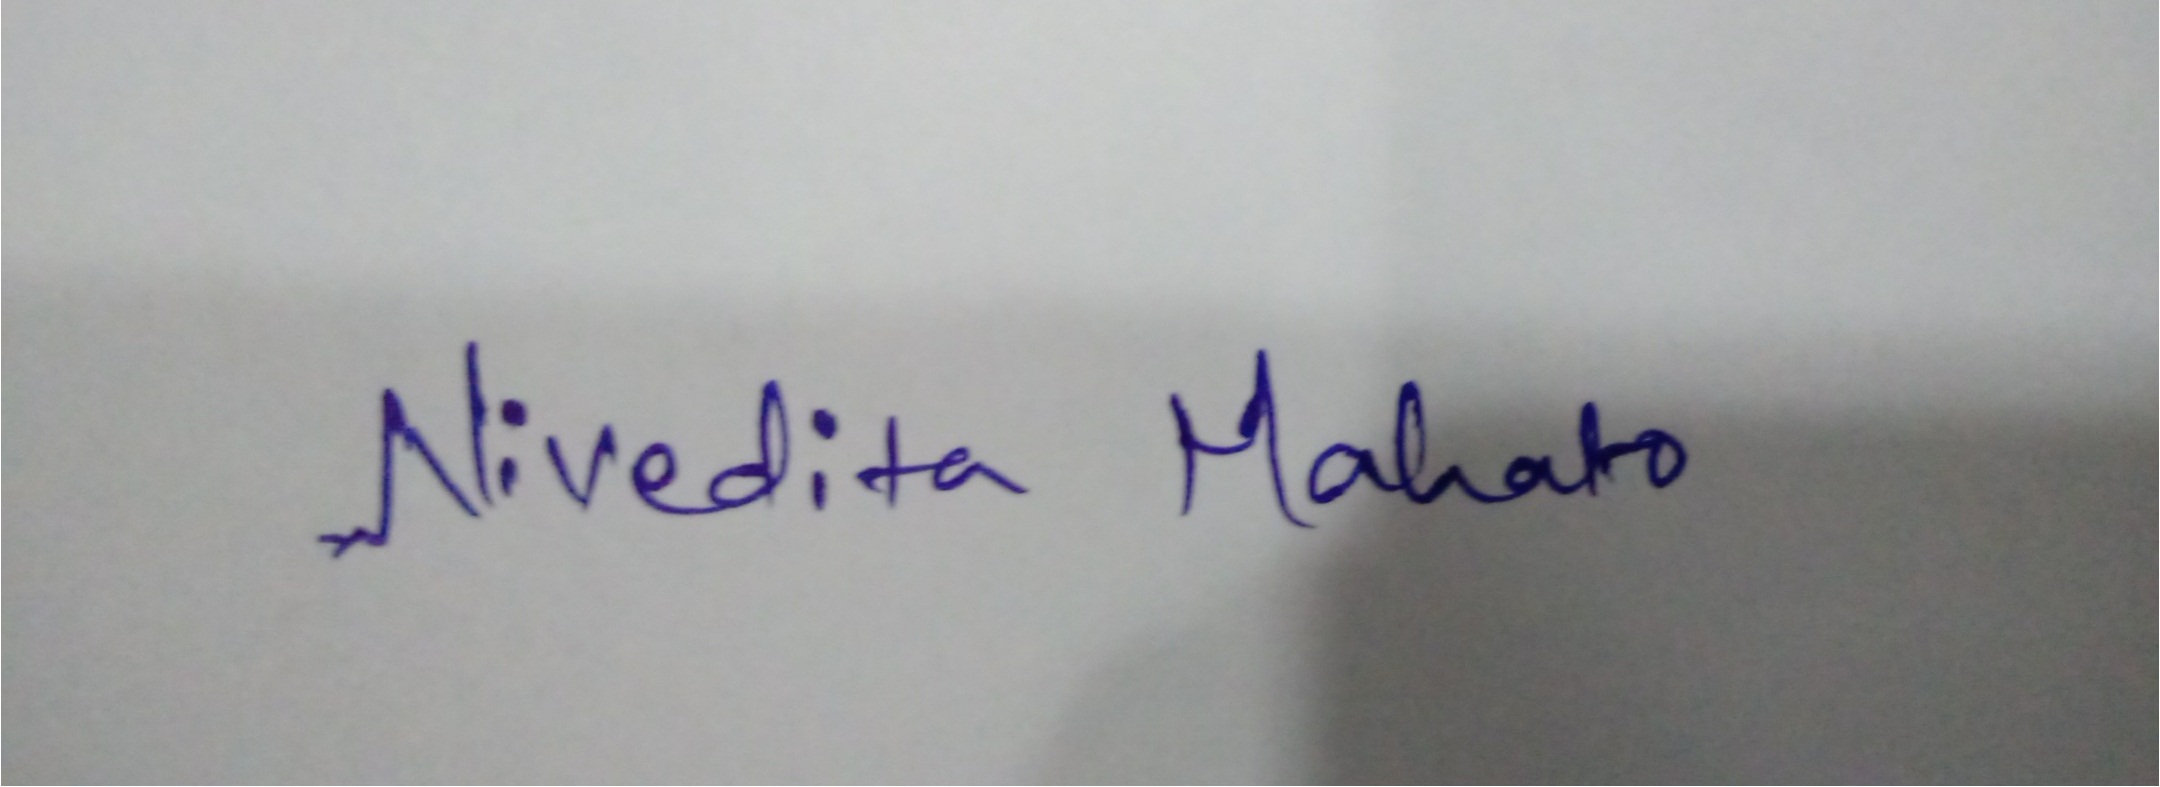 Nivedita Mahato